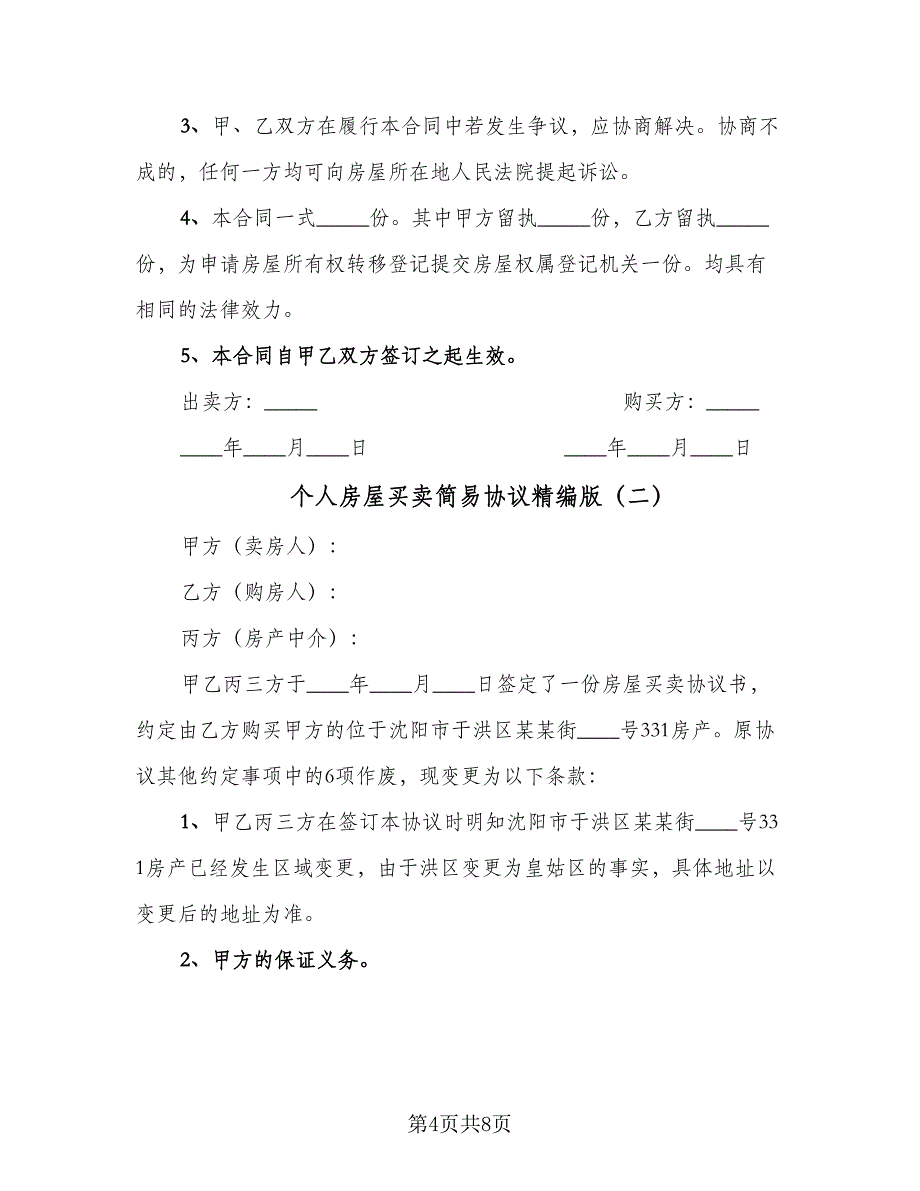 3、甲、乙双方在履行本合同中若发生争议，应协商解决。协商不
成的，任何一方均可向房屋所在地人民法院提起诉讼。
4、本合同一式_____份。其中甲方留执_____份，乙方留执_____
份，为申请房屋所有权转移登记提交房屋权属登记机关一份。均具有
相同的法律效力。
5、本合同自甲乙双方签订之起生效。
出卖方：_____ 购买方：_____
____年____月____日 ____年____月____日
个人房屋买卖简易协议精编版（二）
甲方（卖房人）：
乙方（购房人）：
丙方（房产中介）：
甲乙丙三方于____年____月____日签定了一份房屋买卖协议书，
约定由乙方购买甲方的位于沈阳市于洪区某某街____号331房产。原协
议其他约定事项中的6项作废，现变更为以下条款：
1、甲乙丙三方在签订本协议时明知沈阳市于洪区某某街____号33
1房产已经发生区域变更，由于洪区变更为皇姑区的事实，具体地址以
变更后的地址为准。
2、甲方的保证义务。
第4页共8页